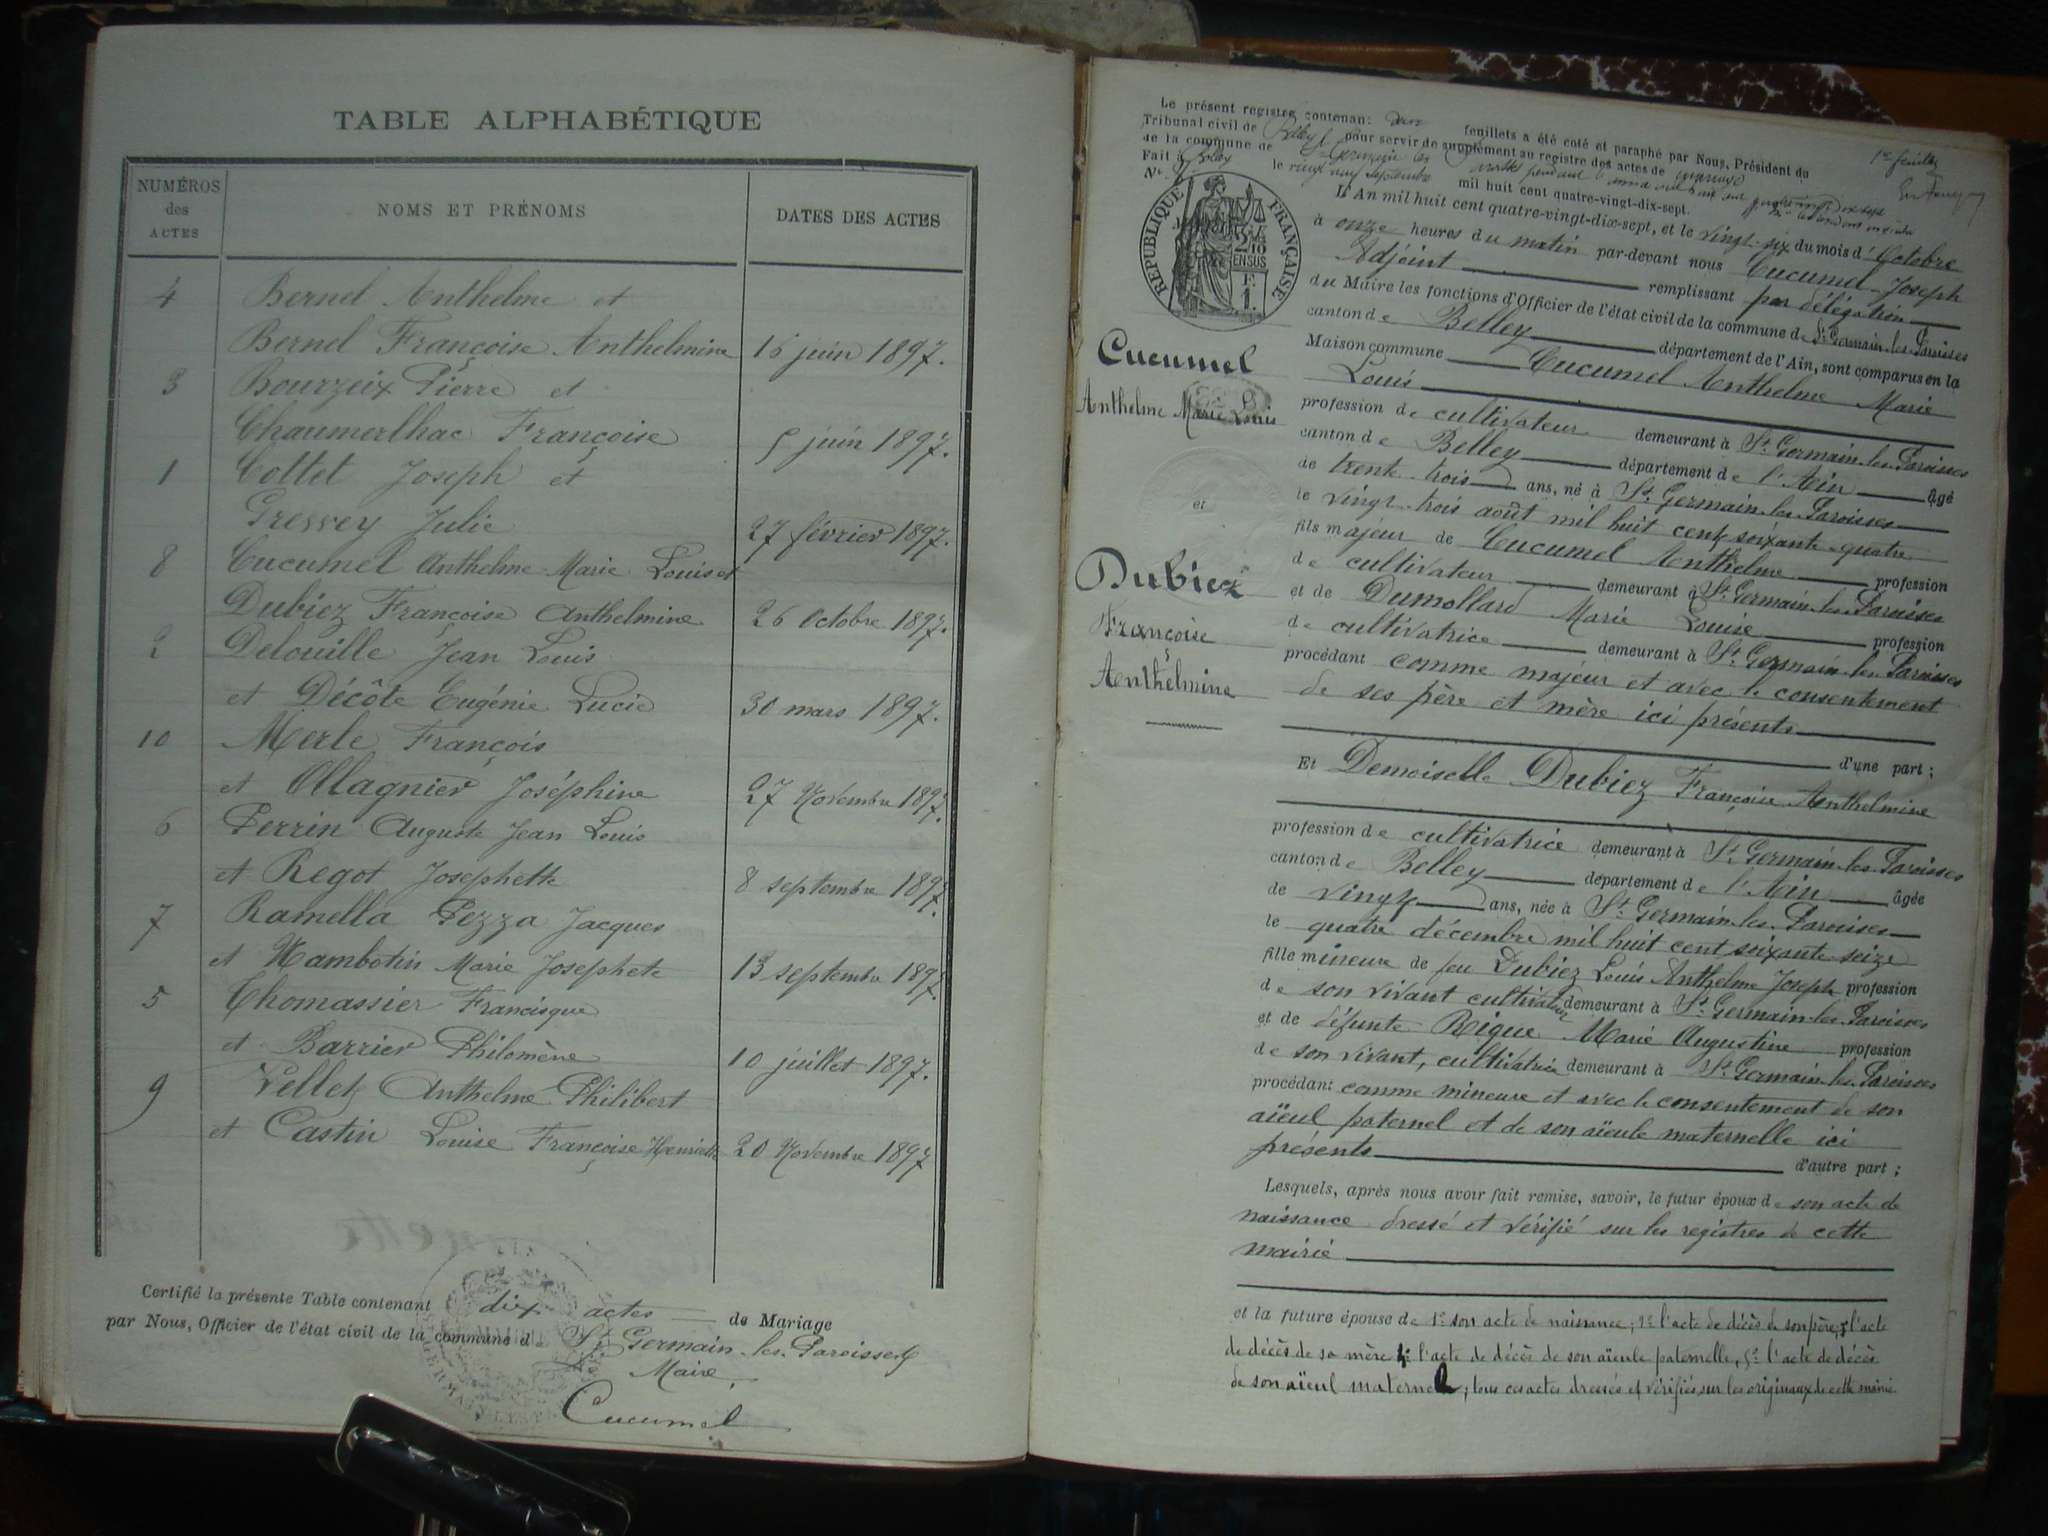 TABLE ALPHABÉTIQUE
NUMÉROS des ACTES
NOMS ET PRÉNOMS
DATES DES ACTES
4 Bernel Anthelme et
Bernel Françoise Anthelmine 16 juin 1897.
3 Bourzeix Pierre et
Chaumerlhac Françoise 5 juin 1897.
1 Collet Joseph et
Gressey Julie 27 février 1897.
8 Cucumel Anthelme Marie Louis et
Dubiez Françoise Anthelmine 26 Octobre 1897.
2 Delouille Jean Louis
et Décôte Eugénie Lucie 30 mars 1897.
10 Merle François
et Ollagnier Joséphine 27 Novembre 1897.
6 Perrin Auguste Jean Louis
et Regot Josephette 8 septembre 1897.
7 Ramella Pezza Jacques
et Hambotin Marie Josephete 13 septembre 1897.
5 Thomassier Francisque
et Barrier Philomène 10 juillet 1897.
9 Vellet Anthelme Philibert
et Castin Louise Françoise Henriette 20 Novembre 1897
Certifié la présente Table contenant dix actes de Mariage
par Nous, Officier de l'état civil de la commune de St Germain-les-Paroisses
Maire
Cucumel
Le présent registre contenan: deux feuillets a été coté et paraphé par Nous, Président du
1er feuillet
Tribunal civil de Belley pour servir de supplément au registre des actes de mariage
de la commune de St Germain les
Fait à Belley le vingt neuf septembre mil huit cent quatre-vingt-dix-sept.
No
RÉPUBLIQUE FRANÇAISE
2/10 EN SUS
F. 1.
L'An mil huit cent quatre-vingt-dix-sept, et le vingt-six du mois d'Octobre
à onze heures du matin par-devant nous Cucumel Joseph
Adjoint remplissant par délégation
du Maire les fonctions d'Officier de l'état civil de la commune de St Germain-les-Paroisses
canton de Belley département de l'Ain, sont comparus en la
Maison commune Cucumel Anthelme Marie
Louis
profession de cultivateur demeurant à St Germain-les-Paroisses
canton de Belley département de l'Ain âgé
de trente-trois ans, né à St Germain-les-Paroisses
le vingt-trois août mil huit cent soixante-quatre
fils majeur de Cucumel Anthelme profession
de cultivateur demeurant à St Germain-les-Paroisses
et de Dumollard Marie Louise profession
de cultivatrice demeurant à St Germain-les-Paroisses
procédant comme majeur et avec le consentement
de ses père et mère ici présents
d'une part;
Cucumel
Anthelme Marie Louis
et
Dubiez
Françoise
Anthelmine
Et Demoiselle Dubiez Françoise Anthelmine
profession de cultivatrice demeurant à St Germain-les-Paroisses
canton de Belley département de l'Ain âgée
de vingt ans, née à St Germain-les-Paroisses
le quatre décembre mil huit cent soixante-seize
fille mineure de feu Dubiez Louis Anthelme Joseph profession
de son vivant cultivateur demeurant à St Germain-les-Paroisses
et de défunte Rigue Marie Augustine profession
de son vivant, cultivatrice demeurant à St Germain-les-Paroisses
procédant comme mineure et avec le consentement de son
aïeul paternel et de son aïeule maternelle ici
présents d'autre part;
Lesquels, après nous avoir fait remise, savoir, le futur époux de son acte de
naissance dressé et vérifié sur les registres de cette
mairie
et la future épouse de 1° son acte de naissance; 2° l'acte de décès de son père; 3° l'acte
de décès de sa mère 4° l'acte de décès de son aïeule paternelle, 5° l'acte de décès
de son aïeul maternel; tous ces actes dressés et vérifiés sur les originaux de cette mairie